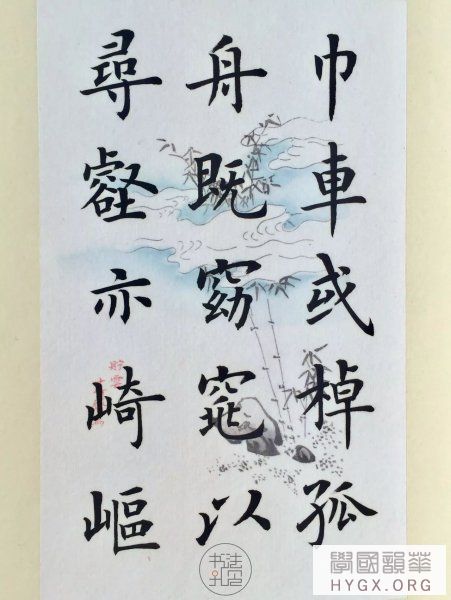 巾車或棹孤
舟既窈窕以
尋壑亦崎嶇
書法
學國韻華
HYGX.ORG